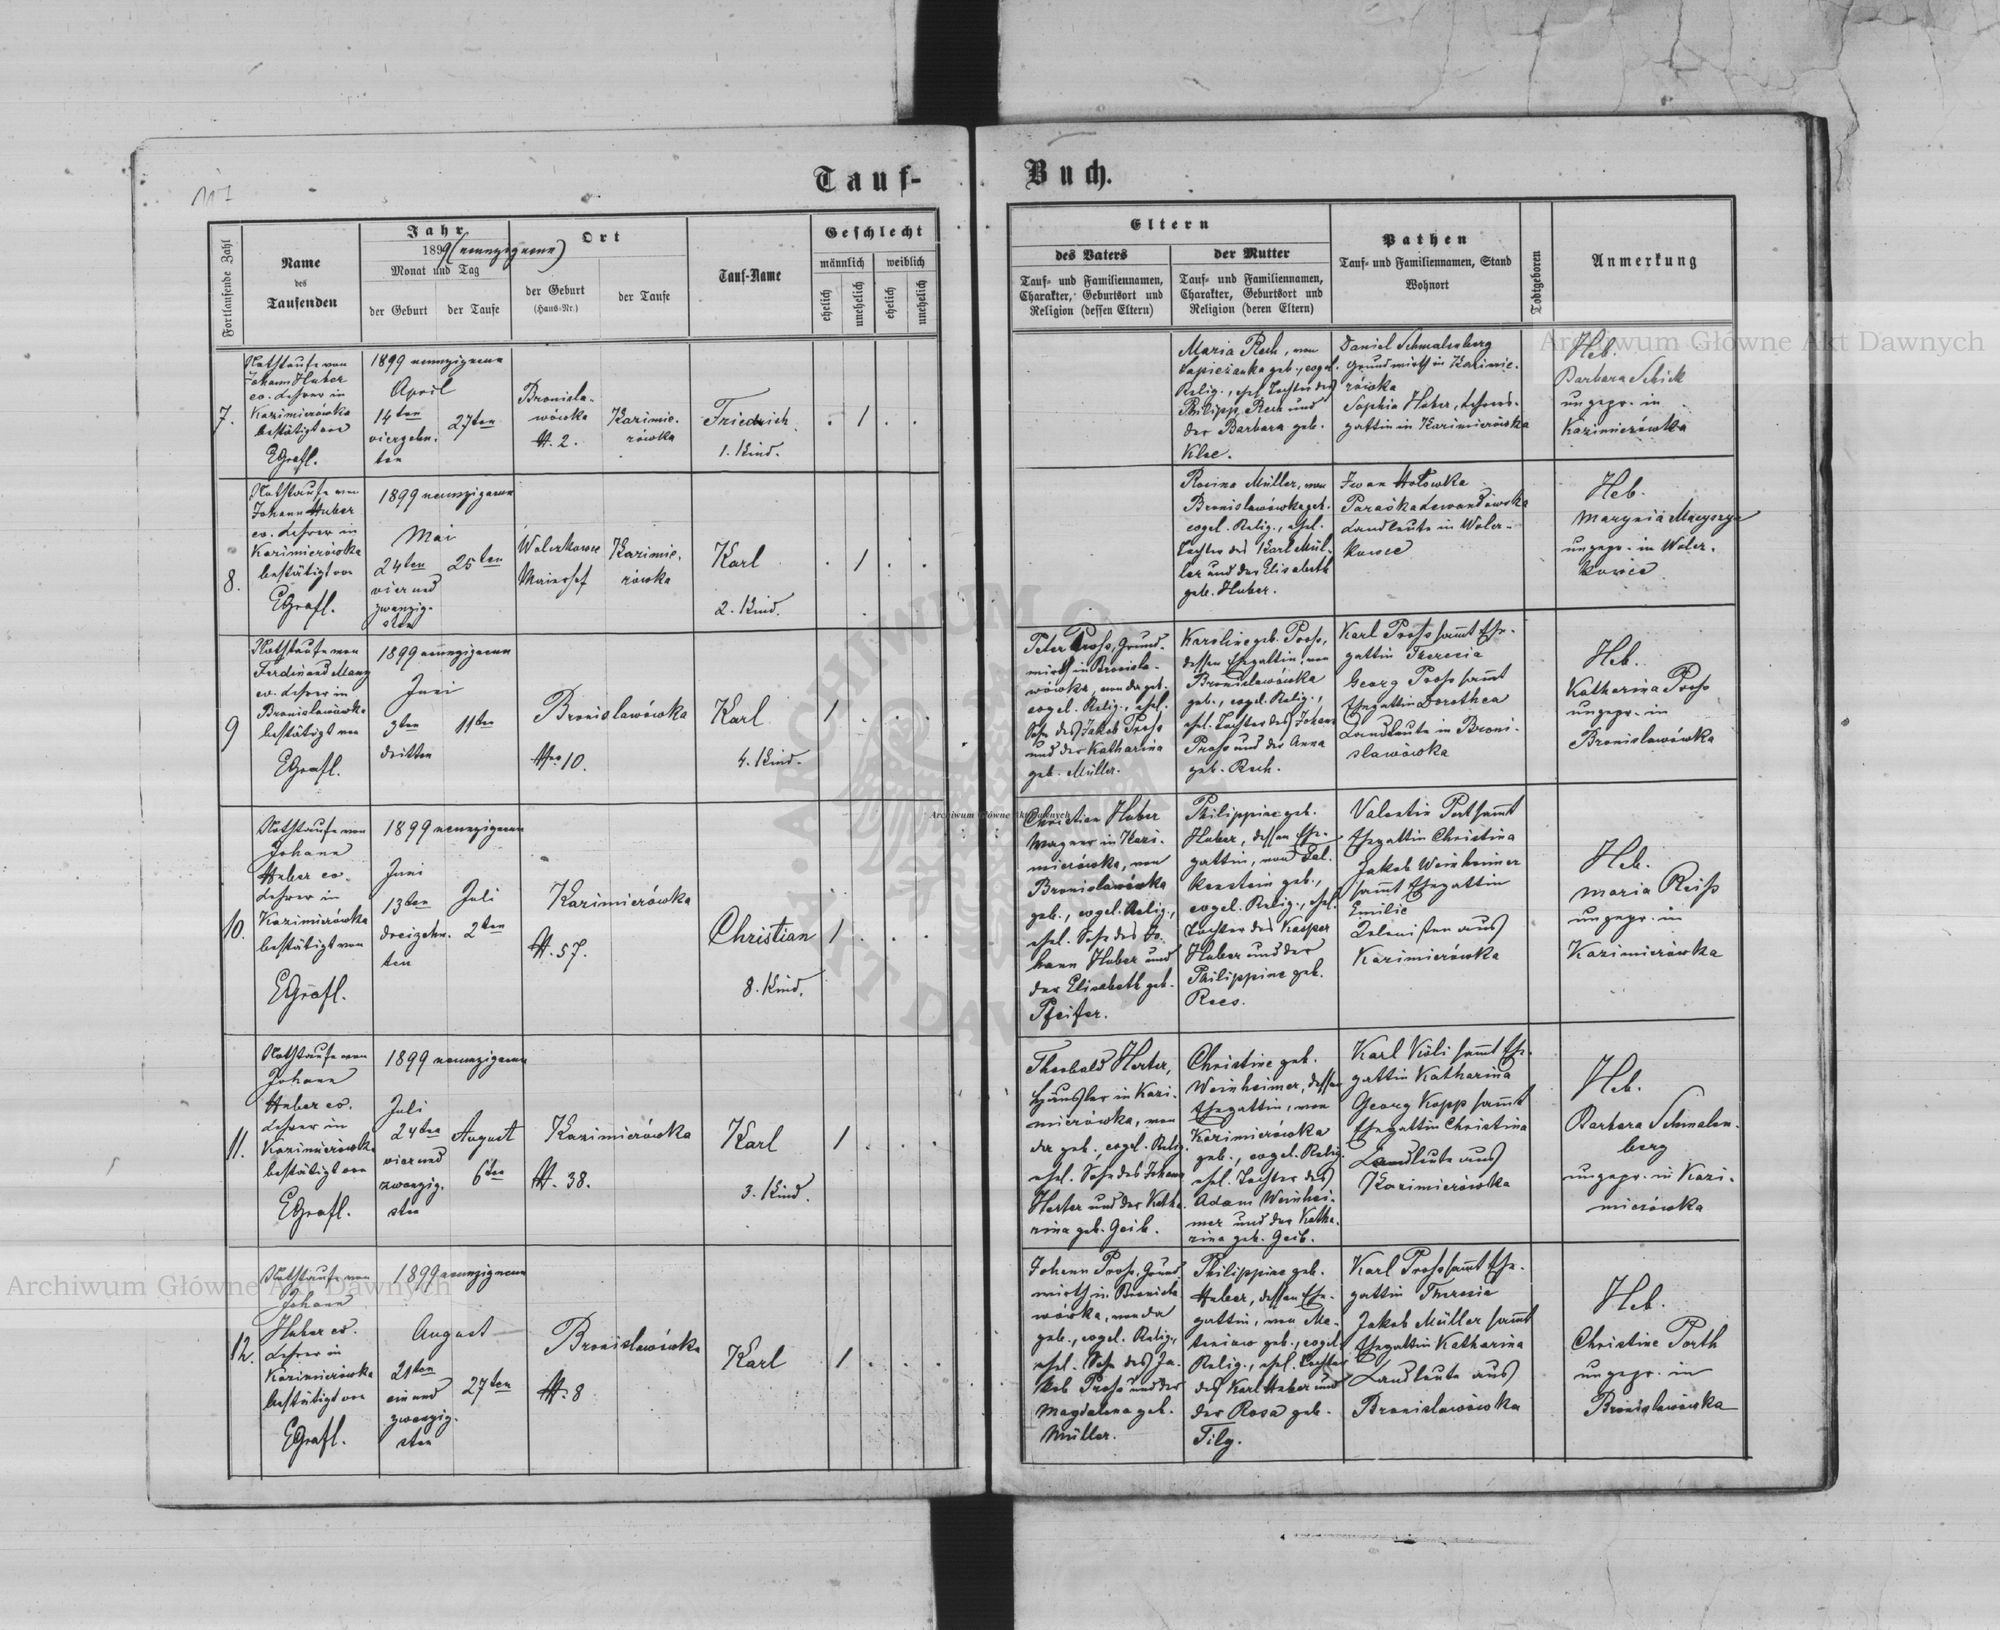 117
Tauf-
Buch.
Fortlaufende Zahl
Name
des
Taufenden
Jahr
1899 (neunzigneun)
Monat und Tag
der Geburt
der Taufe
Ort
der Geburt
(Haus-Nr.)
der Taufe
Tauf-Name
Geschlecht
männlich
weiblich
ehelich
unehelich
ehelich
unehelich
Eltern
des Vaters
Tauf- und Familiennamen,
Charakter, Geburtsort und
Religion (dessen Eltern)
der Mutter
Tauf- und Familiennamen,
Charakter, Geburtsort und
Religion (deren Eltern)
Pathen
Tauf- und Familiennamen, Stand
Wohnort
Todtgeboren
Anmerkung
7.
Nothtaufe von
Johann Huber
ev. Lehrer in
Kazimierówka
bestätigt von
EGrafl.
1899 neunzigneun
April
14ten
vierzehn.
ten
27ten
Bronisla-
wówka
N. 2.
Kazimie.
rówka
Friedrich
1. Kind.
1
Maria Rech, von
Sapieżanka geb., evgel.
Relig., ehel. Tochter des
Philipp Rech und
der Barbara geb.
Klee.
Daniel Schmalenberg
Grundwirth in Kazimie.
rówka
Sophia Huber, Lehrers-
gattin in Kazimierówka
Heb.
Barbara Schick
ungepr. in
Kazimierówka
8.
Nothtaufe von
Johann Huber
ev. Lehrer in
Kazimierówka
bestätigt von
EGrafl.
1899 neunzigneun
Mai
24ten
vier und
zwanzig-
sten
25ten
Wolerkowce
Maierhof
Kazimie.
rówka
Karl
2. Kind.
1
Rosina Müller, von
Bronislawówka geb.
evgel. Relig., ehel.
Tochter des Karl Mül-
ler und der Elisabeth
geb. Huber.
Iwan Hołowka
Paraśka Lewandowska
Landleute in Woler-
kowce
Heb.
Marynia
ungepr. in Woler.
kowce
9
Nothtaufe von
Ferdinand Mang
ev. Lehrer in
Bronislawówka
bestätigt von
EGrafl.
1899 neunzigneun
Juni
3ten
dritten
11ten
Bronislawówka
Nro 10.
Karl
4. Kind.
1
Peter Pross, Grund-
wirth in Bronisla-
wówka, von da geb.
evgel. Relig., ehel.
Sohn des Jakob Pross
und der Katharina
geb. Müller.
Karoline geb. Pross,
dessen Ehegattin, von
Bronislawówka
geb., evgel. Relig.,
ehel. Tochter des Johann
Pross und der Anna
geb. Rech.
Karl Pross sammt Ehe-
gattin Theresia
Georg Pross sammt
Ehegattin Dorothea
Landleute in Broni-
slawówka
Heb.
Katharina Pross
ungepr. in
Bronislawówka
10.
Nothtaufe von
Johann
Huber ev.
Lehrer in
Kazimierówka
bestätigt von
EGrafl.
1899 neunzigneun
Juni
13ten
dreizehn.
ten
Juli
2ten
Kazimierówka
N. 57.
Christian
8. Kind.
1
Christian Huber
Wagner in Kazi-
mierówka, von
Bronislawówka
geb., evgel. Relig.,
ehel. Sohn des Jo-
hann Huber und
der Elisabeth geb.
Pfeifer.
Philippine geb.
Huber, dessen Ehe-
gattin, von Fal.
kenstein geb.,
evgel. Relig., ehel.
Tochter des Kasper
Huber und der
Philippine geb.
Rees.
Valentin Port sammt
Ehegattin Christina
Jakob Weinheimer
sammt Ehegattin
Emilie
Kolonisten aus
Kazimierówka
Heb.
Maria Reiss
ungepr. in
Kazimierówka
11.
Nothtaufe von
Johann
Huber ev.
Lehrer in
Kazimierówka
bestätigt von
EGrafl.
1899 neunzigneun
Juli
24ten
vier und
zwanzig.
sten
August
6ten
Kazimierówka
N. 38.
Karl
3. Kind.
1
Theobald Herter,
Häusler in Kazi-
mierówka, von
da geb., evgel. Relig.
ehel. Sohn des Johann
Herter und der Katha.
rina geb. Geib.
Christine geb.
Weinheimer, dessen
Ehegattin, von
Kazimierówka
geb., evgel. Relig.
ehel. Tochter des
Adam Weinhei-
mer und der Katha.
rina geb. Geib.
Karl Köli sammt Ehe-
gattin Katharina
Georg Kopp sammt
Ehegattin Christina
Landleute aus
Kazimierówka
Heb.
Barbara Schmalen-
berg
ungepr. in Kazi-
mierówka
12.
Nothtaufe von
Johann
Huber ev.
Lehrer in
Kazimierówka
bestätigt von
EGrafl.
1899 neunzigneun
August
21ten
ein und
zwanzig.
sten
27ten
Bronislawówka
N. 8
Karl
1
Johann Pross, Grund-
wirth in Bronisla
wówka, von da
geb., evgel. Relig.,
ehel. Sohn des Ja.
kob Pross und der
Magdalena geb.
Müller.
Philippine geb.
Huber, dessen Ehe-
gattin, von Ma-
teniow geb., evgel.
Relig., ehel. Tochter
des Karl Huber und
der Rosa geb.
Filg.
Karl Pross sammt Ehe-
gattin Theresia
Jakob Müller sammt
Ehegattin Katharina
Landleute aus
Bronislawówka
Heb.
Christine Porth
ungepr. in
Bronislawówka
Archiwum Główne Akt Dawnych
Archiwum Główne Akt Dawnych
Archiwum Główne Akt Dawnych